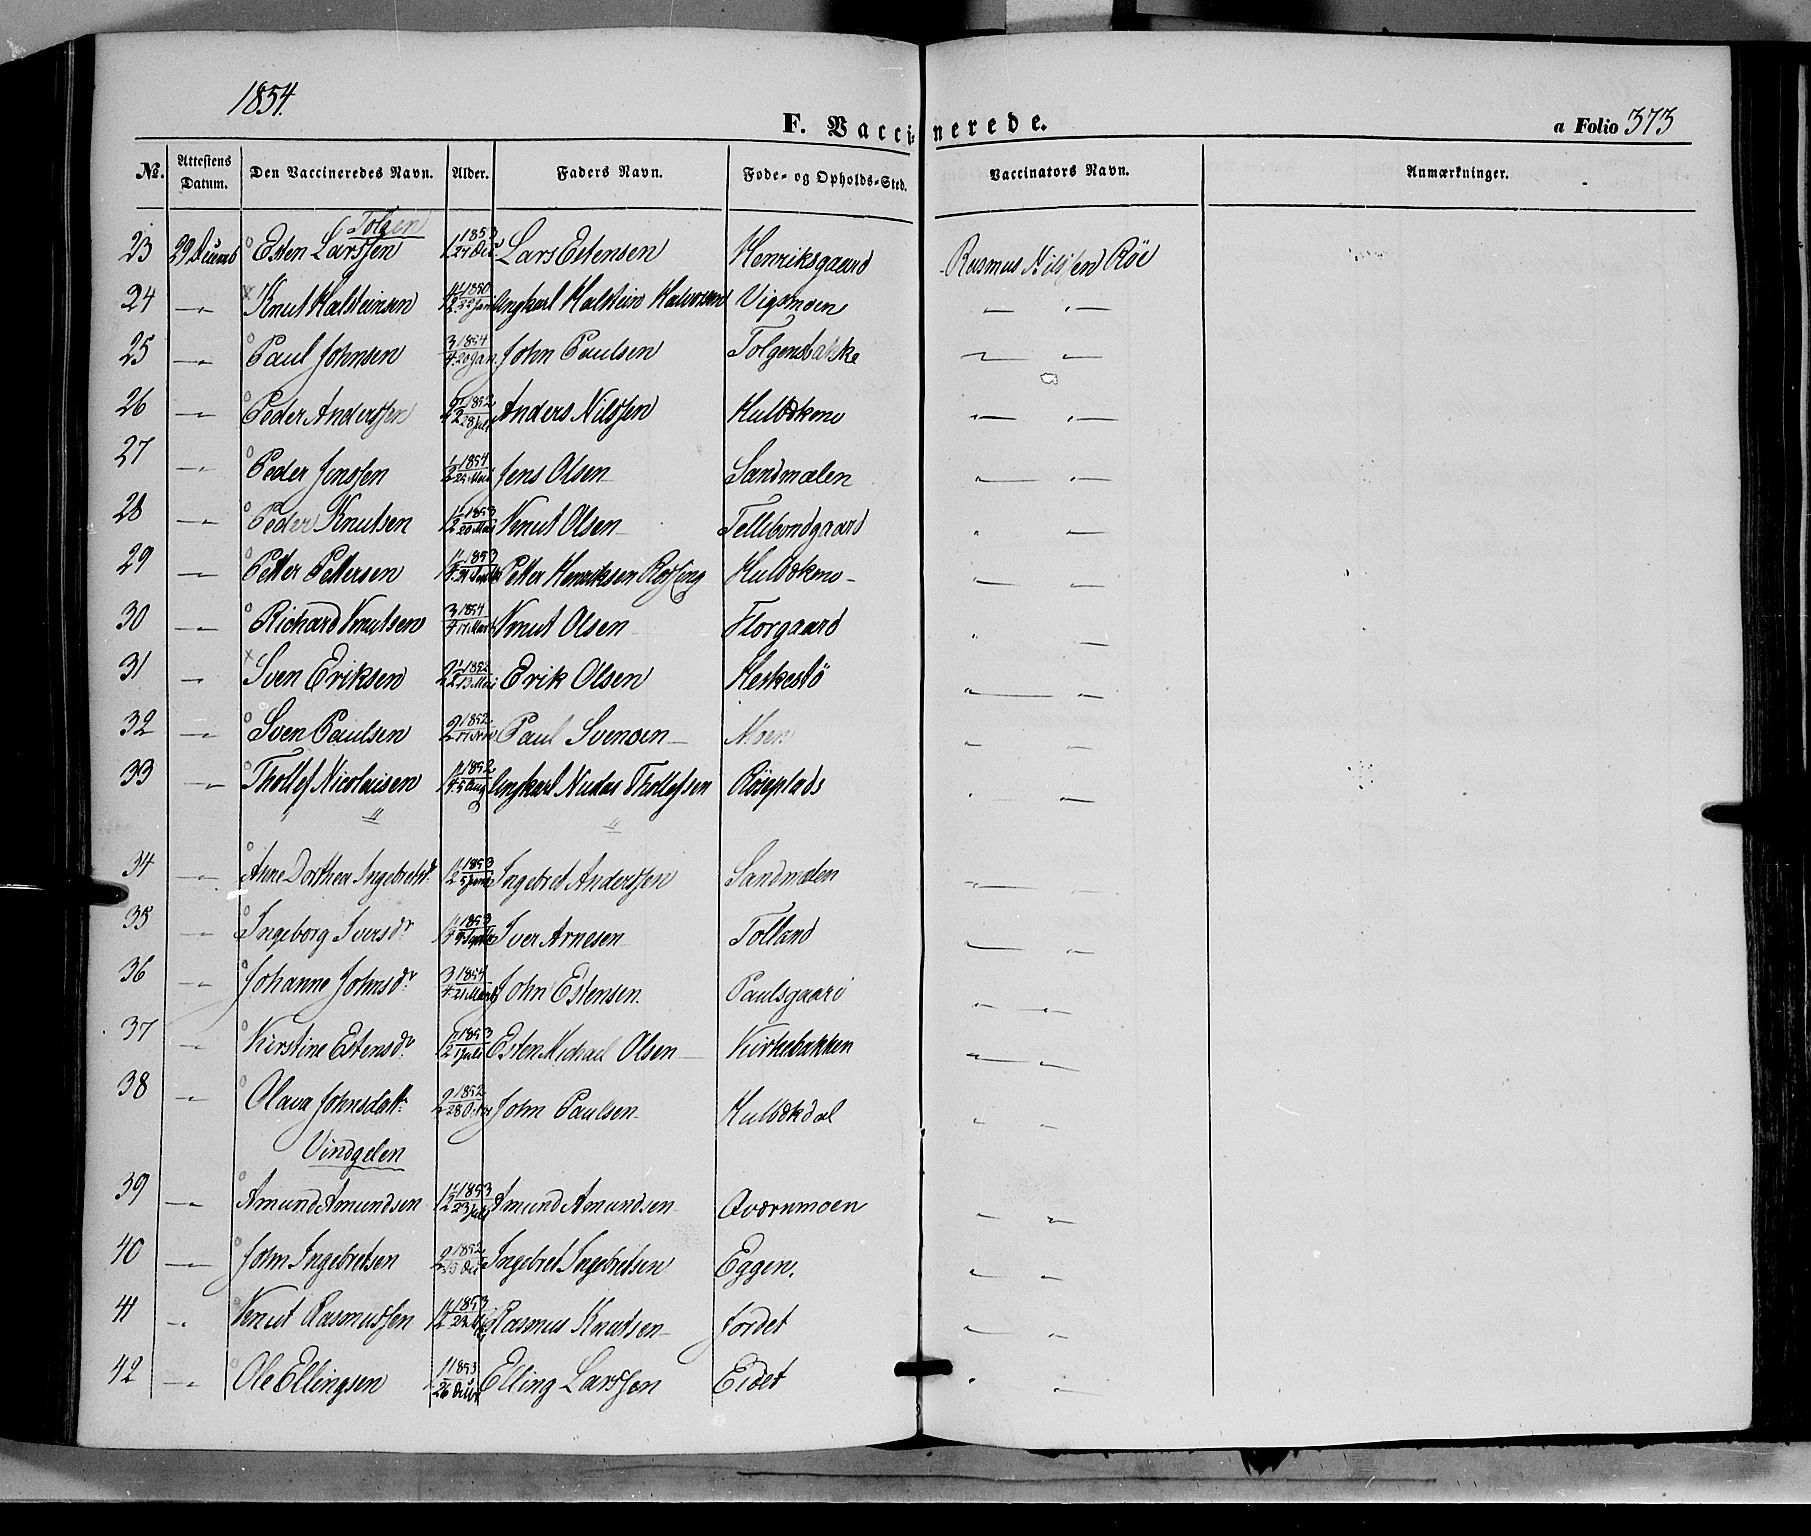 1854.
F. Vaccinerede.
a Folio 373
No. Attestens Datum. Den Vaccineredes Navn. Alder. Faders Navn. Føde- og Opholds-Sted. Vaccinators Navn. Anmærkninger.
Tolgen
23 29 Decemb Esten Larssen 1 1853 27 Dec Lars Estensen Henriksgaard Rasmus Nilssen Röe
24 —„— Knut Halsteinsen 1850 22 Jan Ungkarl Halstein Halvorsen Vigsmoen —„— „—
25 —„— Paul Johnsen 3/4 1854 20 Jan. John Paulsen Tolgensbakke —„— —
26 —„— Peder Anderssen 1852 28 Juli Anders Nilssen Hulbækmo „— „—
27 —„— Peder Jenssen 1/2 1854 Jens Olsen Sandmælen „— „—
28 —„— Peder Knutsen 1 1/2 1853 20 Mai Knut Olsen Tellebondgaard „ —
29 —„— Petter Pettersen 1 1/4 1853 Petter Henriksen Røsling Hulbækmo „— —
30 —„— Richard Knutsen 3/4 1854 17 Marts Knut Olsen Florgaard „ —
31 —„ Sven Eriksen 2 1/2 1852 13 Mai Erik Olsen Heskestö „— „—
32 —„— Sven Paulsen 2 1852 Paul Svensen Moen „— „—
33 —„— Thollef Nicolaisen 1852 5 Aug Ungkarl Thollefsen Røseplads „ „—
34 —„— Anne Dorthea Ingebretsd. 1 1/2 1853 5 Ingebret Anderssen Sandmælen „— „—
35 —„— Ingeborg Iversdr. 1 1/4 1853 Iver Arnesen Tolland „— „—
36 —„— Johanne Johnsdr. 3/4 1854 21 Marts John Estensen. Paulsgaard „— „—
37 —„— Kirstine Estensdr. 1 1/2 1853 1 Juli Esten Michael Olsen Kirkebakken „— „—
38 —„— Olava Johnsdatr. 2 1852 28 John Paulsen Hulbækdal „— „—
Vindgelen
39 —„— Amund Amundsen 1 1/2 1853 23 Juli Amund Amundsen Qværnmoen „— „—
40 —„— John Ingebretsen 2 1852 Dec Ingebret Ingebretsen Eggen. „— „—
41 —„ Knut Rasmussen 1 1/2 1853 Rasmus Knutsen Jordet „— „—
42 —„— Ole Ellingsen 1 1853 26 Decbr Elling Larssen Eidet „ „—